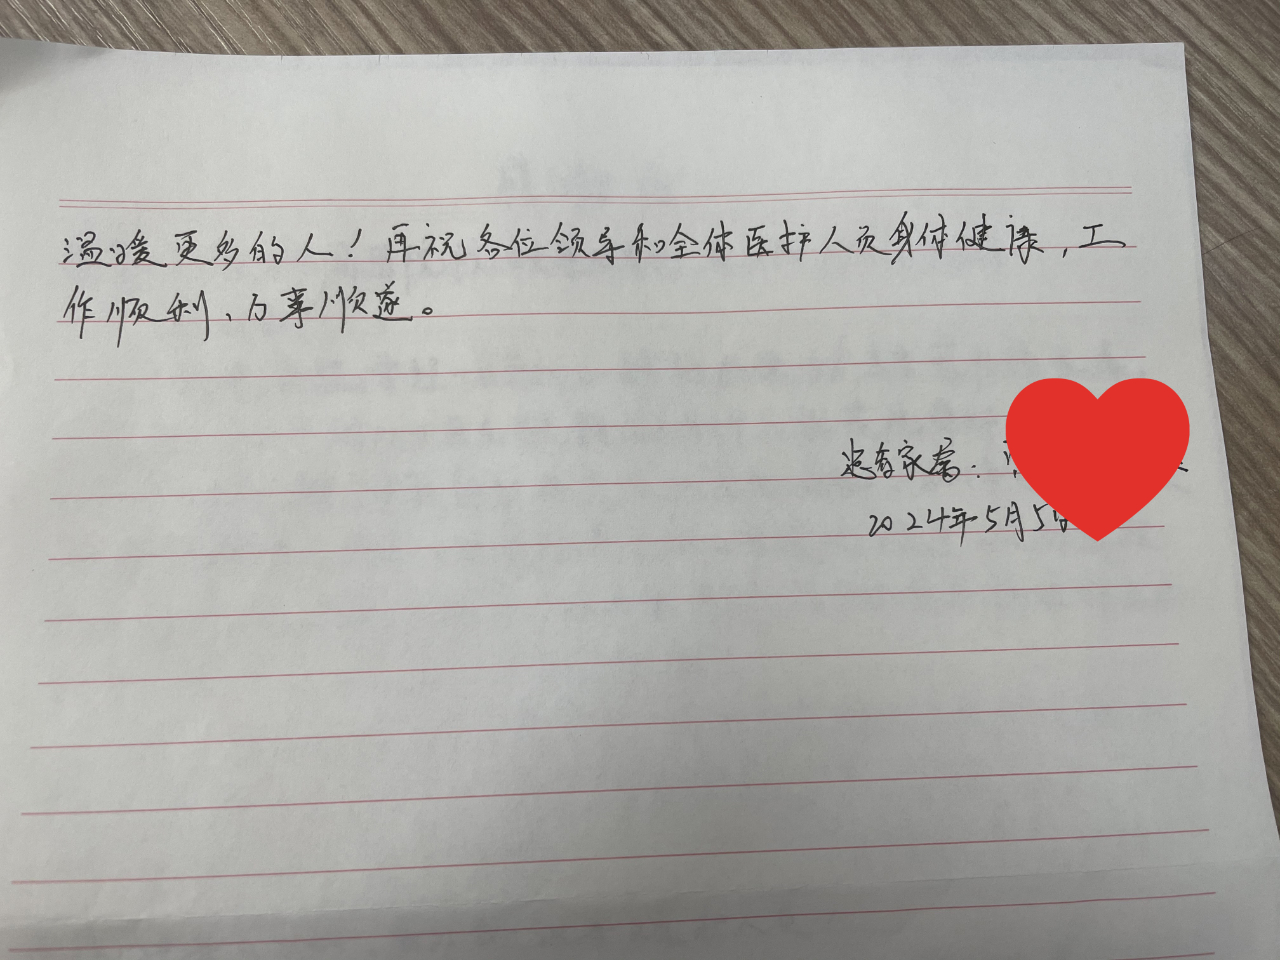 温暖更多的人！再祝各位领导和全体医护人员身体健康，工
作顺利、万事顺遂。
患者家属：
2024年5月5日